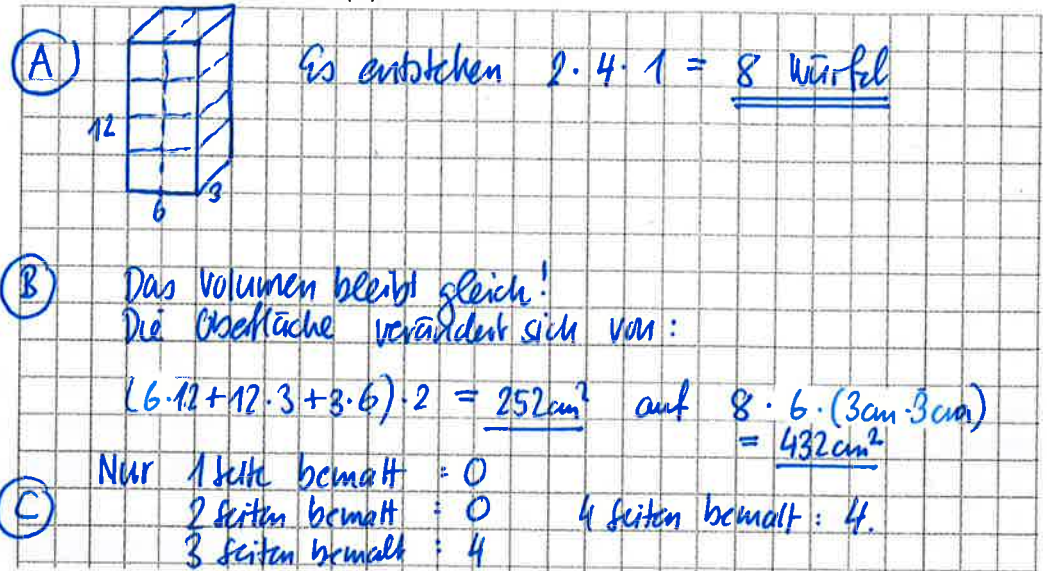 A
Es entstehen 2·4·1 = 8 Würfel
12
3
6
B
Das Volumen bleibt gleich!
Die Oberfläche verändert sich von:
(6·12+12·3+3·6)·2 = 252cm² auf 8·6·(3cm·3cm)
= 432cm²
Nur 1 Seite bemalt : 0
C
2 Seiten bemalt : 0 4 Seiten bemalt : 4.
3 Seiten bemalt : 4